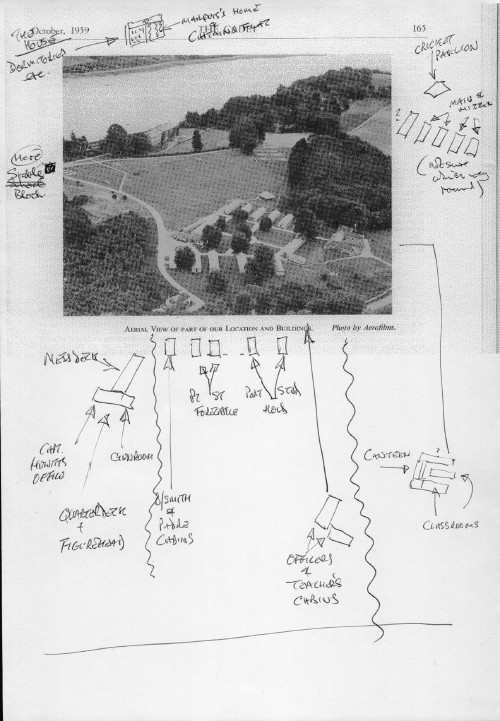 THE
HOUSE
DORMITORIES
etc.
October, 1959
THE
165
MARQUIS'S HOME
&
CRICKET
PAVILION
MAIN &
MIZZEN
?
(not sure
which way
round)
More
Stable
Block
AERIAL VIEW OF PART OF OUR LOCATION AND BUILDINGS. Photo by Aerofilms.
MESSDECK
GUNROOM
OFFICE
QUARTERDECK
+
FIGUREHEAD
S/SMITH
&
PADRE
CABINS
Pt ST
FORETABLE
PORT STBD
HOLD
OFFICERS
&
TEACHER'S
CABINS
CANTEEN
? ?
CLASSROOMS